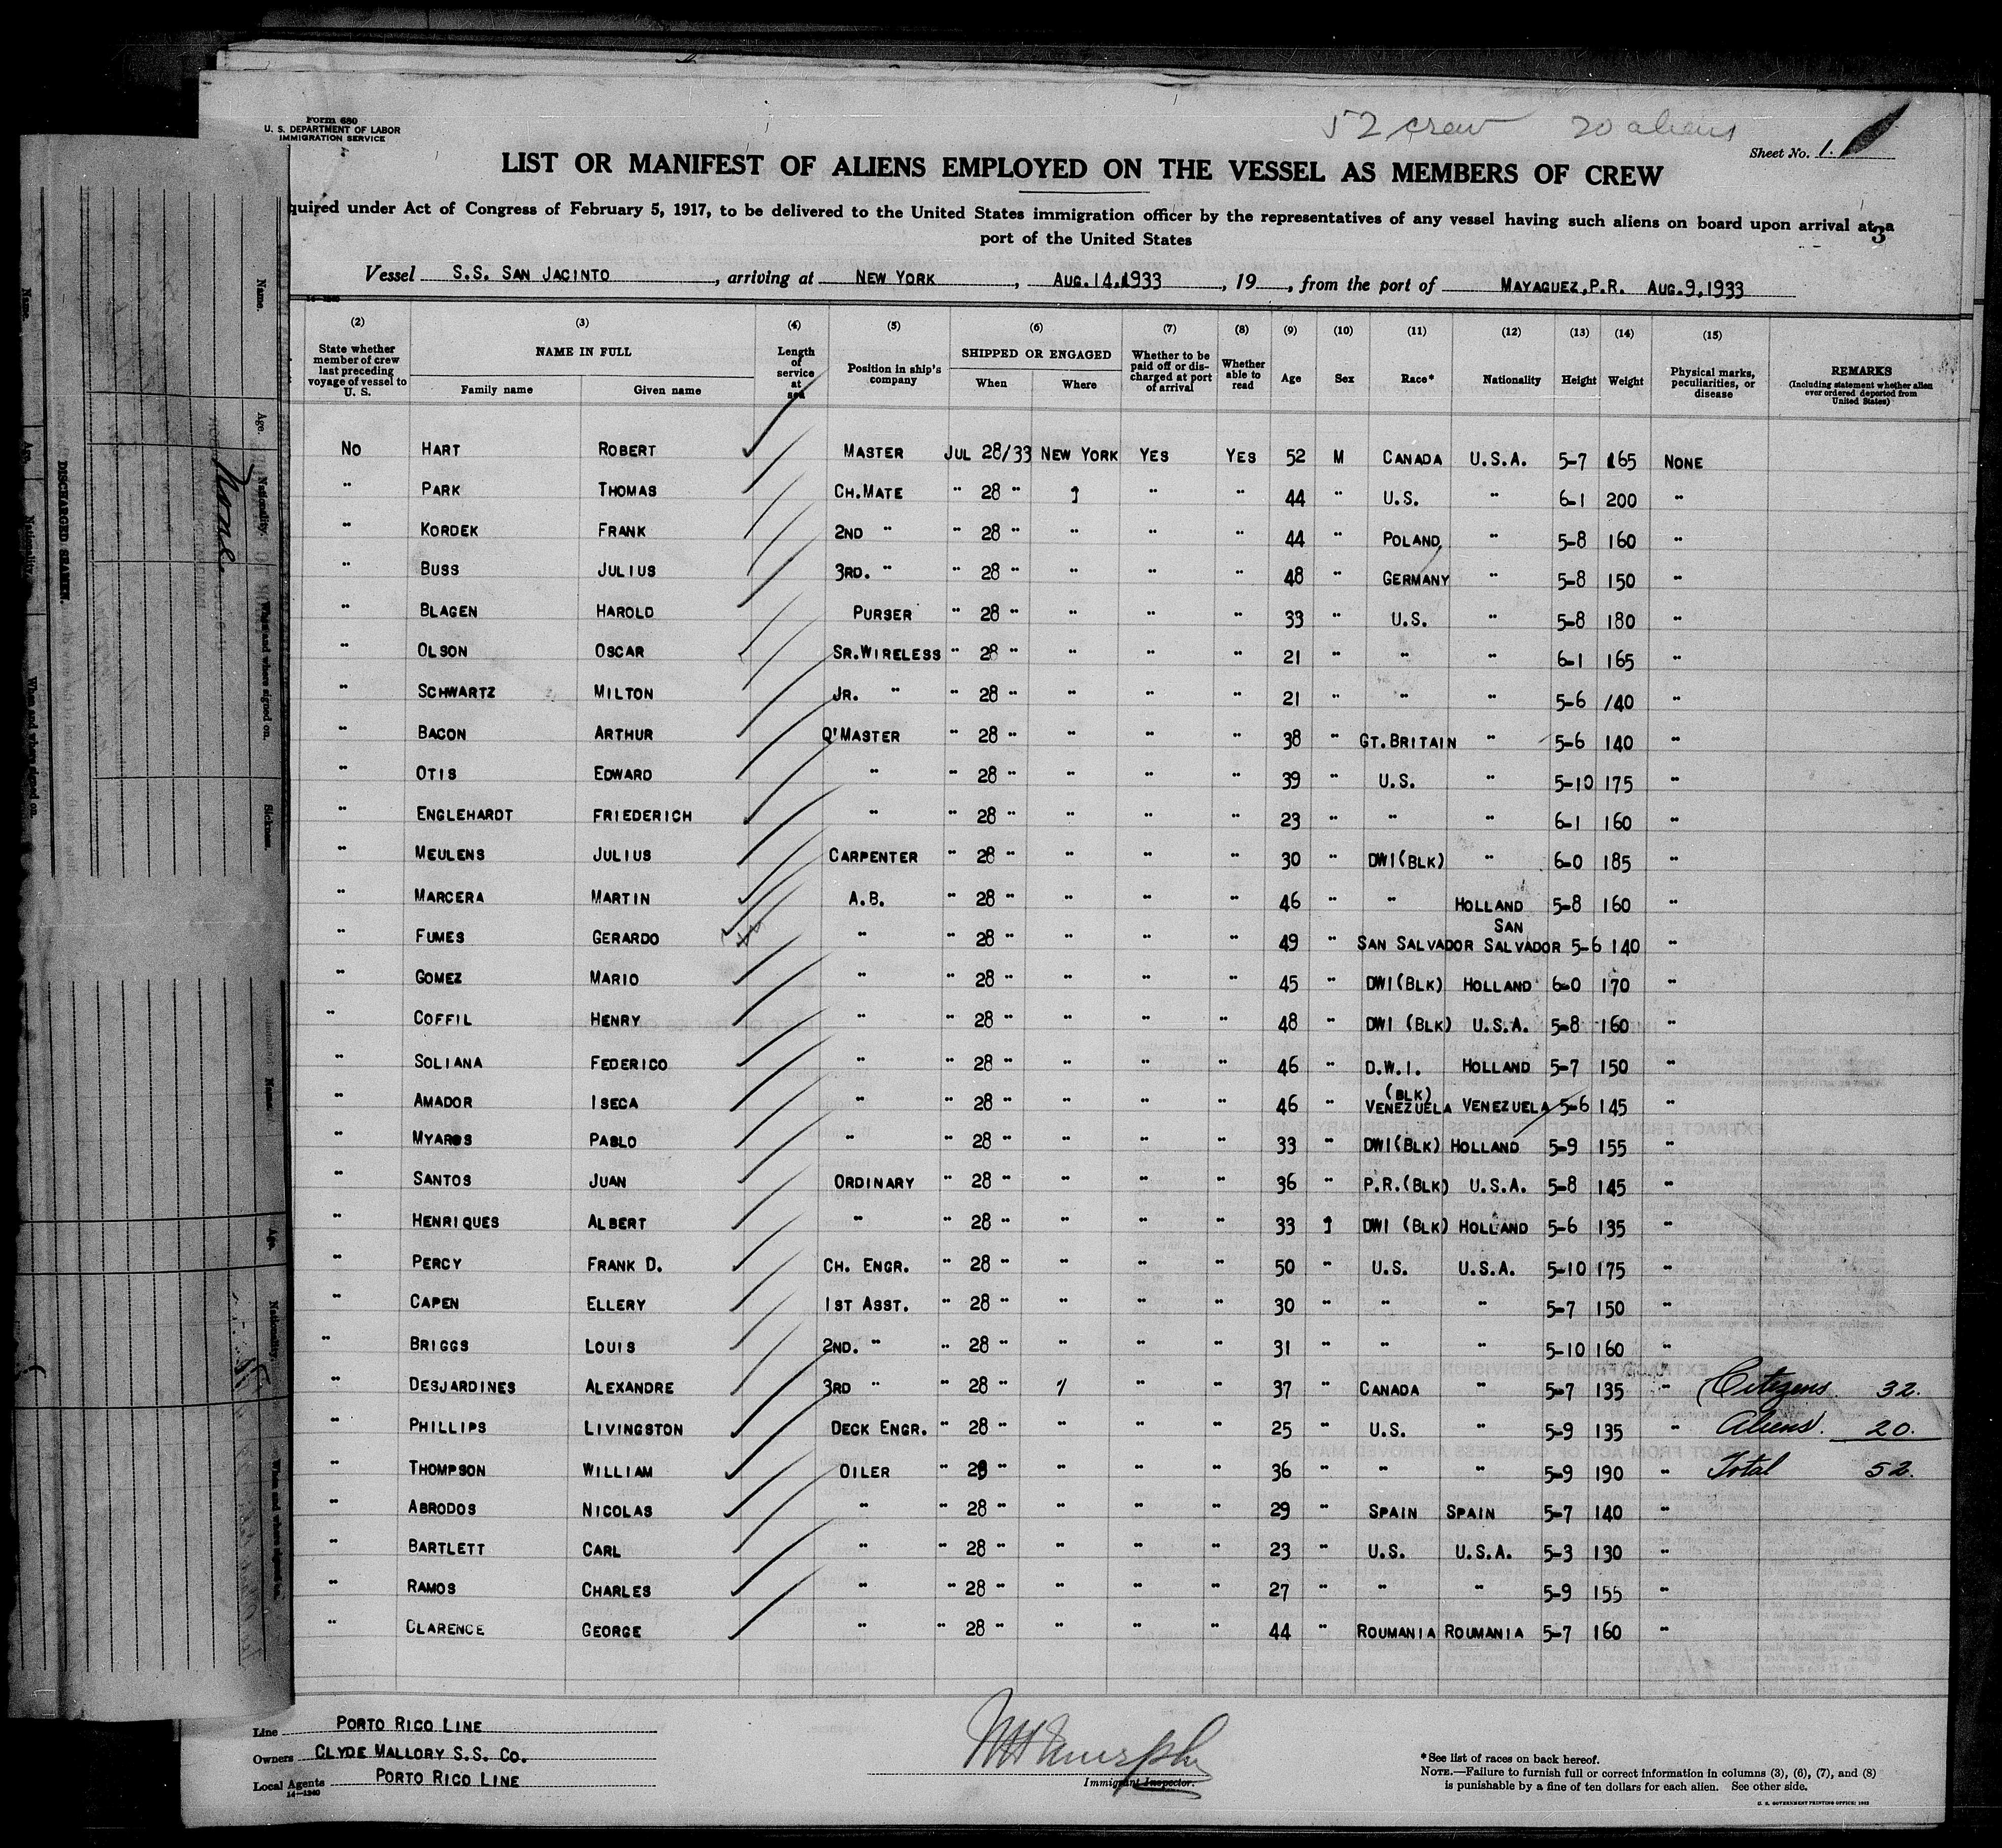 Form 680
U. S. DEPARTMENT OF LABOR
IMMIGRATION SERVICE
52 crew 20 aliens
Sheet No. 1.
LIST OR MANIFEST OF ALIENS EMPLOYED ON THE VESSEL AS MEMBERS OF CREW
quired under Act of Congress of February 5, 1917, to be delivered to the United States immigration officer by the representatives of any vessel having such aliens on board upon arrival at a
port of the United States
3
Vessel S.S. SAN JACINTO, arriving at NEW YORK, AUG.14.1933, 19, from the port of MAYAGUEZ,P.R. AUG.9,1933
(2) (3) (4) (5) (6) (7) (8) (9) (10) (11) (12) (13) (14) (15)
State whether member of crew last preceding voyage of vessel to U. S. NAME IN FULL Family name Given name Length of service at sea Position in ship's company SHIPPED OR ENGAGED When Where Whether to be paid off or discharged at port of arrival Whether able to read Age Sex Race* Nationality Height Weight Physical marks, peculiarities, or disease REMARKS (Including statement whether alien ever ordered deported from United States)
No HART ROBERT MASTER JUL 28/33 NEW YORK YES YES 52 M CANADA U.S.A. 5-7 165 NONE
" PARK THOMAS CH.MATE " 28 " " " " 44 " U.S. " 6-1 200 "
" KORDEK FRANK 2ND " " 28 " " " " 44 " POLAND " 5-8 160 "
" BUSS JULIUS 3RD. " " 28 " " " " 48 " GERMANY " 5-8 150 "
" BLAGEN HAROLD PURSER " 28 " " " " 33 " U.S. " 5-8 180 "
" OLSON OSCAR SR.WIRELESS " 28 " " " " 21 " " " 6-1 165 "
" SCHWARTZ MILTON JR. " " 28 " " " " 21 " " " 5-6 140 "
" BACON ARTHUR Q'MASTER " 28 " " " " 38 " GT.BRITAIN " 5-6 140 "
" OTIS EDWARD " " 28 " " " " 39 " U.S. " 5-10 175 "
" ENGLEHARDT FRIEDERICH " " 28 " " " " 23 " " " 6-1 160 "
" MEULENS JULIUS CARPENTER " 28 " " " " 30 " DWI(BLK) " 6-0 185 "
" MARCERA MARTIN A.B. " 28 " " " " 46 " " HOLLAND 5-8 160 "
" FUMES GERARDO " " 28 " " " " 49 " SAN SALVADOR SAN SALVADOR 5-6 140 "
" GOMEZ MARIO " " 28 " " " " 45 " DWI(BLK) HOLLAND 6-0 170 "
" COFFIL HENRY " " 28 " " " " 48 " DWI (BLK) U.S.A. 5-8 160 "
" SOLIANA FEDERICO " " 28 " " " " 46 " D.W.I. (BLK) HOLLAND 5-7 150 "
" AMADOR ISECA " " 28 " " " " 46 " VENEZUELA VENEZUELA 5-6 145 "
" MYAROS PABLO " " 28 " " " " 33 " DWI(BLK) HOLLAND 5-9 155 "
" SANTOS JUAN ORDINARY " 28 " " " " 36 " P.R.(BLK) U.S.A. 5-8 145 "
" HENRIQUES ALBERT " " 28 " " " " 33 " DWI (BLK) HOLLAND 5-6 135 "
" PERCY FRANK D. CH. ENGR. " 28 " " " " 50 " U.S. U.S.A. 5-10 175 "
" CAPEN ELLERY 1ST ASST. " 28 " " " " 30 " " " 5-7 150 "
" BRIGGS LOUIS 2ND. " " 28 " " " " 31 " " " 5-10 160 "
" DESJARDINES ALEXANDRE 3RD " " 28 " " " " 37 " CANADA " 5-7 135 " Citizens 32.
" PHILLIPS LIVINGSTON DECK ENGR. " 28 " " " " 25 " U.S. " 5-9 135 " Aliens. 20.
" THOMPSON WILLIAM OILER " 28 " " " " 36 " " " 5-9 190 " Total 52.
" ABRODOS NICOLAS " " 28 " " " " 29 " SPAIN SPAIN 5-7 140 "
" BARTLETT CARL " " 28 " " " " 23 " U.S. U.S.A. 5-3 130 "
" RAMOS CHARLES " " 28 " " " " 27 " " " 5-9 155 "
" CLARENCE GEORGE " " 28 " " " " 44 " ROUMANIA ROUMANIA 5-7 160 "
Line PORTO RICO LINE
Owners CLYDE MALLORY S.S. CO.
Local Agents PORTO RICO LINE
14—1240
Immigrant Inspector.
*See list of races on back hereof.
NOTE.—Failure to furnish full or correct information in columns (3), (6), (7), and (8)
is punishable by a fine of ten dollars for each alien. See other side.
U. S. GOVERNMENT PRINTING OFFICE: 1932
Name.
Age.
Nationality.
When and where signed on.
Sickness.
None
DISCHARGED SEAMEN.
Name.
Age.
Nationality.
When and where signed on.